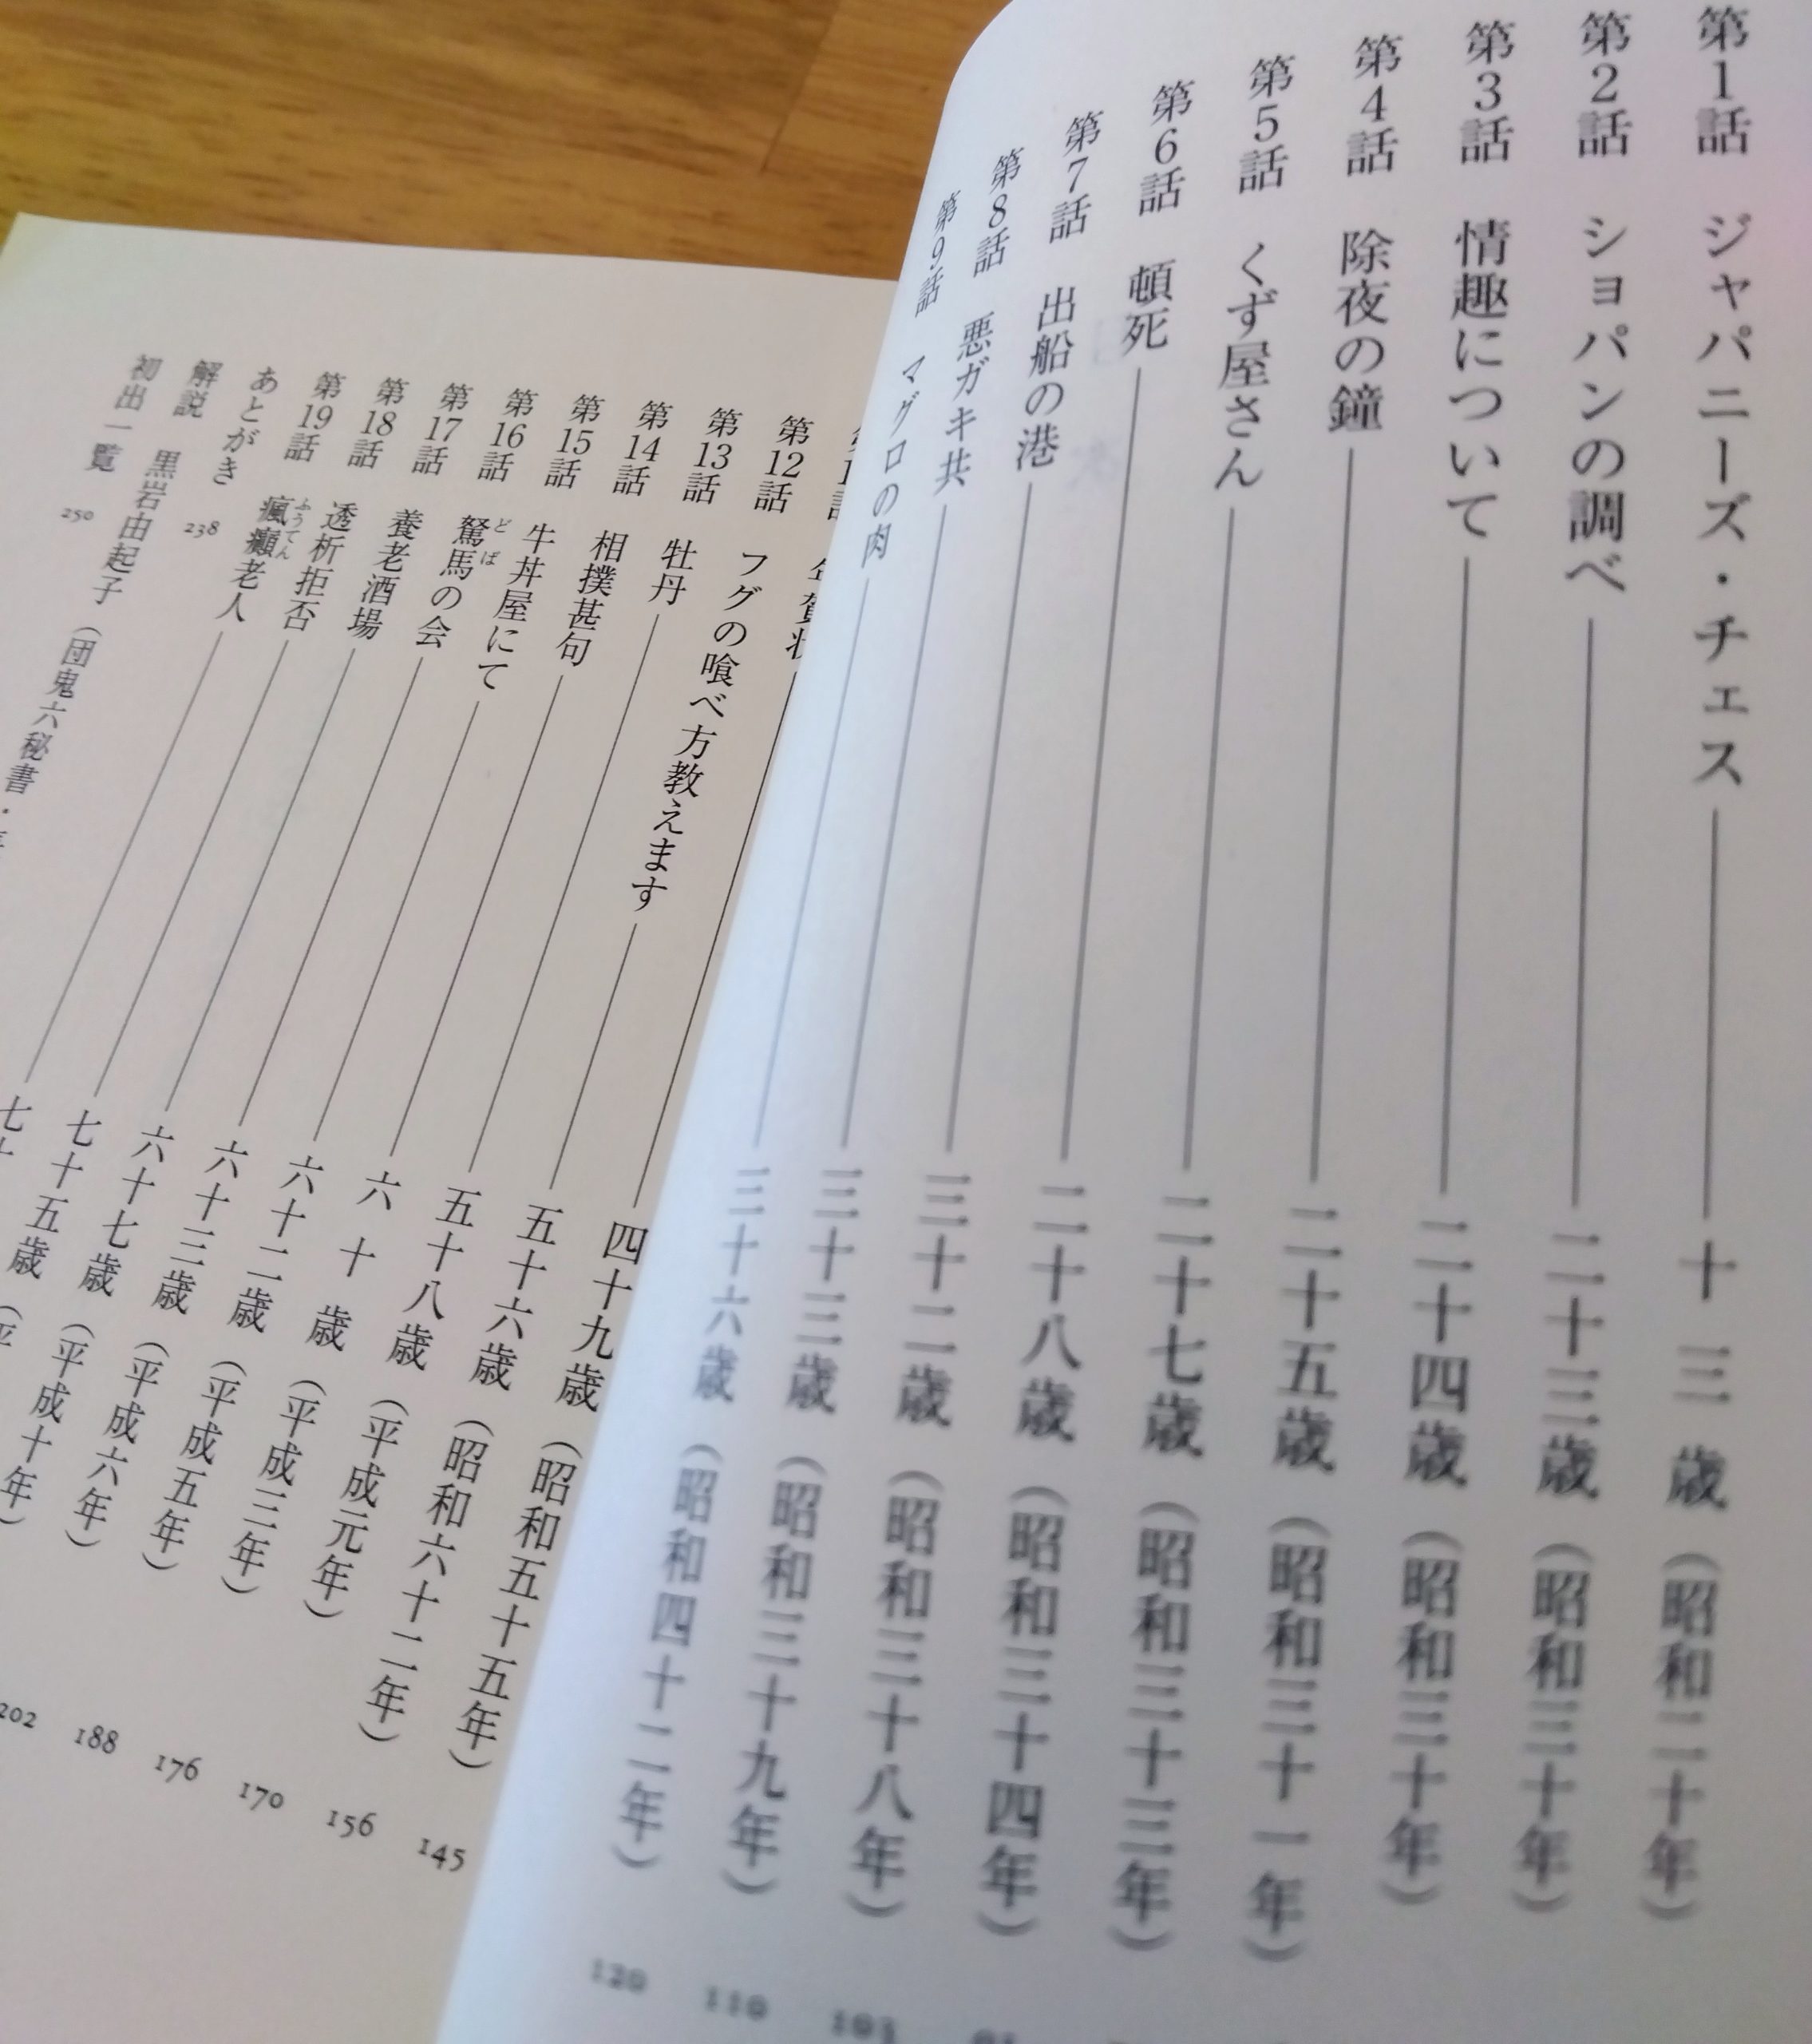 第1話 ジャパニーズ・チェス ── 十三歳 (昭和二十年)
第2話 ショパンの調べ ── 二十三歳 (昭和三十年)
第3話 情趣について ── 二十四歳 (昭和三十年)
第4話 除夜の鐘 ── 二十五歳 (昭和三十一年)
第5話 くず屋さん ── 二十七歳 (昭和三十三年)
第6話 頓死 ── 二十八歳 (昭和三十四年)
第7話 出船の港 ── 三十二歳 (昭和三十八年) 103
第8話 悪ガキ共 ── 三十三歳 (昭和三十九年) 110
第9話 マグロの肉 ── 三十六歳 (昭和四十二年) 120
年賀状 ── 四十九歳 (昭和五十五年) 145
第12話 フグの喰べ方教えます ── 五十六歳 (昭和六十二年) 156
第13話 牡丹 ── 五十八歳 (平成元年) 170
第14話 相撲甚句 ── 六十歳 (平成三年) 176
第15話 牛丼屋にて ── 六十二歳 (平成五年) 188
第16話 駑馬の会 ── 六十三歳 (平成六年) 202
第17話 養老酒場 ── 六十七歳 (平成十年)
第18話 透析拒否 ── 七十五歳 (平
第19話 瘋癲老人 ── 七十
あとがき 238
解説 黒岩由起子 (団鬼六秘書・
初出一覧 250